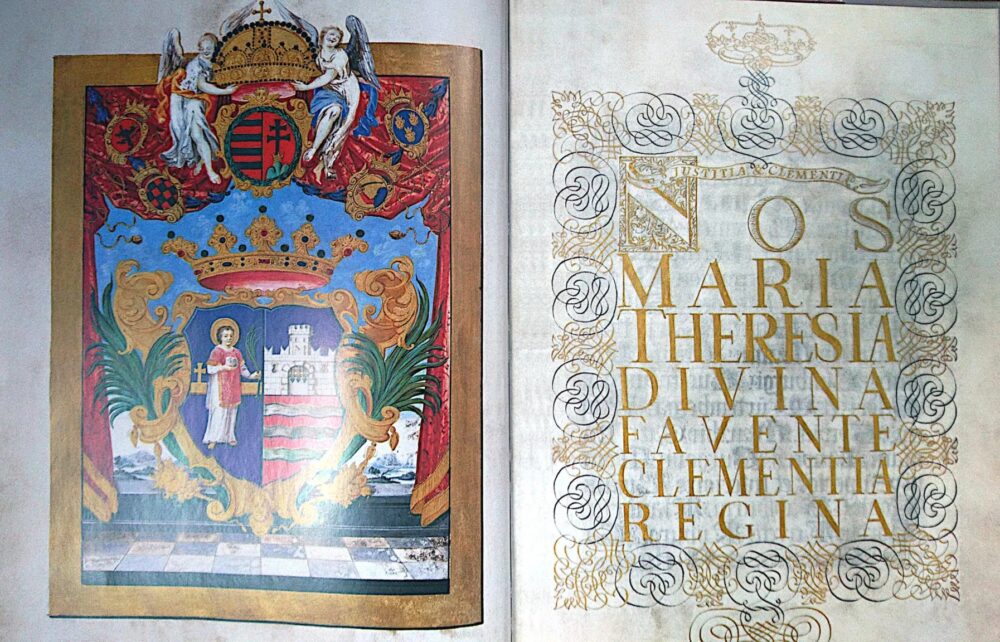 JUSTITIA & CLEMENTIA
NOS
MARIA
THERESIA
DIVINA
FAVENTE
CLEMENTIA
REGINA